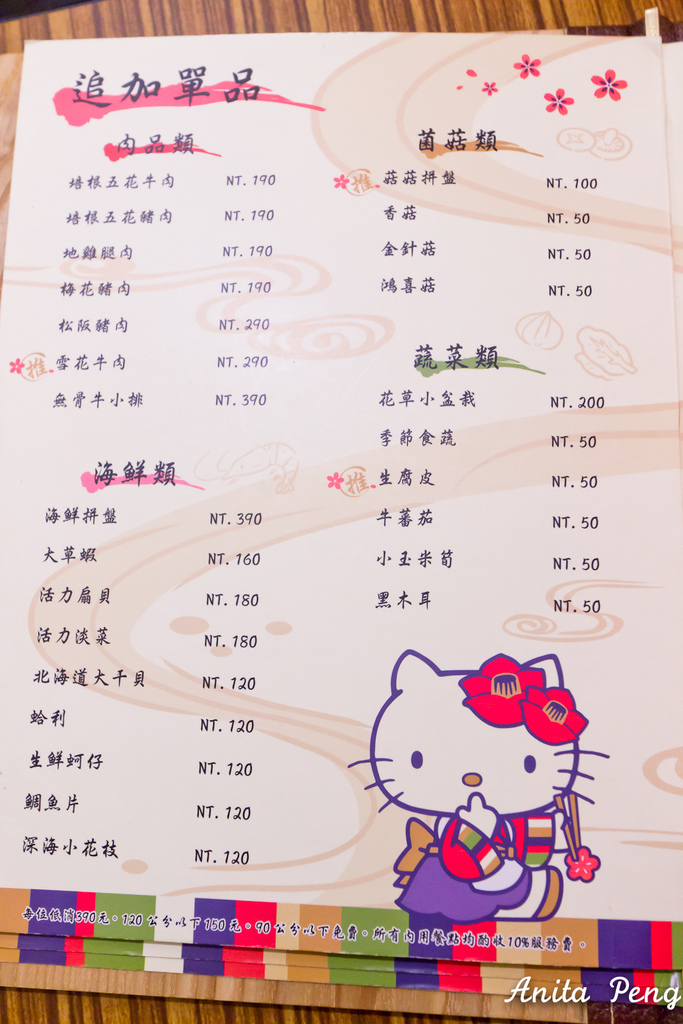 追加單品
肉品類
培根五花牛肉 NT. 190
培根五花豬肉 NT. 190
地雞腿肉 NT. 190
梅花豬肉 NT. 190
松阪豬肉 NT. 290
推 雪花牛肉 NT. 290
無骨牛小排 NT. 390
海鮮類
海鮮拼盤 NT. 390
大草蝦 NT. 160
活力扇貝 NT. 180
活力淡菜 NT. 180
北海道大干貝 NT. 120
蛤利 NT. 120
生鮮蚵仔 NT. 120
鯛魚片 NT. 120
深海小花枝 NT. 120
菌菇類
推 菇菇拼盤 NT. 100
香菇 NT. 50
金針菇 NT. 50
鴻喜菇 NT. 50
蔬菜類
花草小盆栽 NT. 200
季節食蔬 NT. 50
推 生腐皮 NT. 50
牛蕃茄 NT. 50
小玉米筍 NT. 50
黑木耳 NT. 50
每位低消390元。120公分以下150元。90公分以下免費。所有內用餐點均酌收10%服務費。
Anita Peng